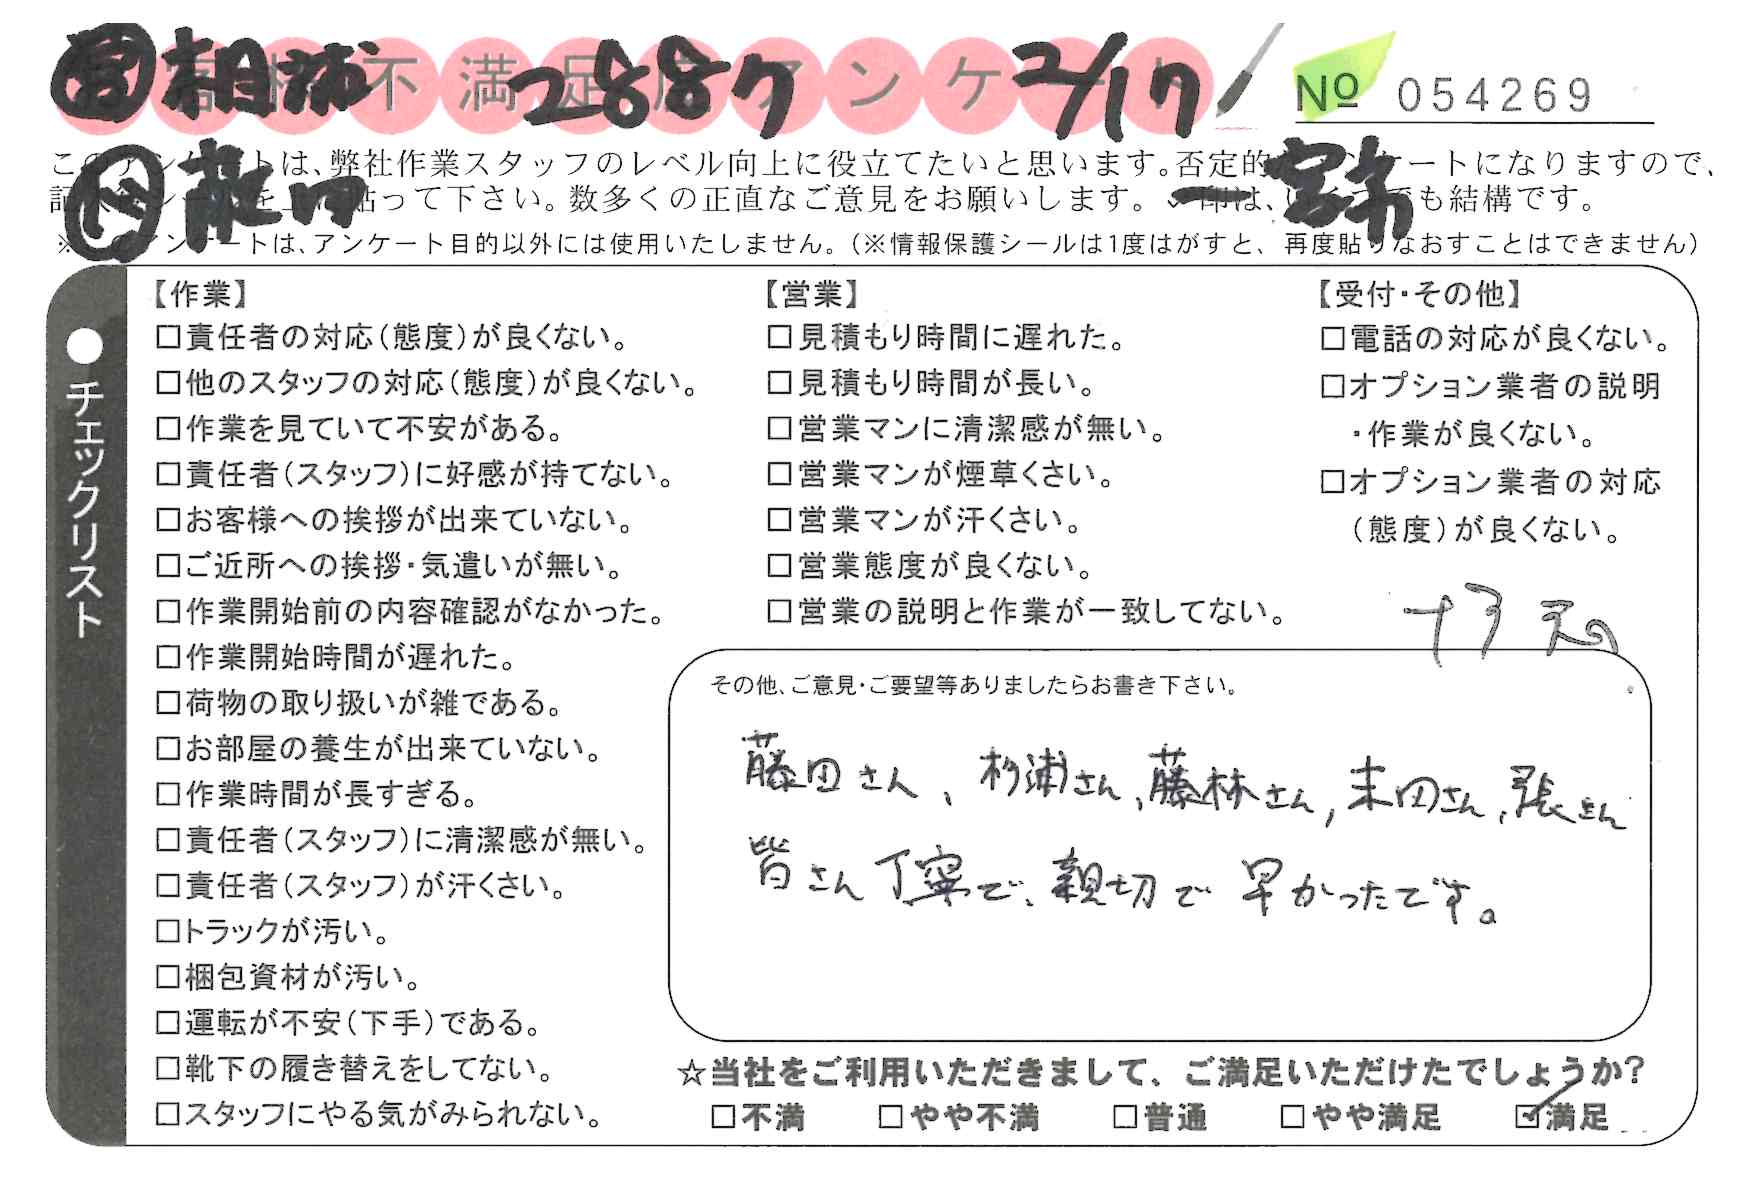 営 相浦 不満足 2887 アンケート 2/17 № 054269
このアンケートは、弊社作業スタッフのレベル向上に役立てたいと思います。否定的 ケートになりますので、
貼って下さい。数多くの正直なご意見をお願いします。 印は、いくつでも結構です。
※ アンケートは、アンケート目的以外には使用いたしません。（※情報保護シールは1度はがすと、再度貼りなおすことはできません）
●チェックリスト
【作業】
□責任者の対応（態度）が良くない。
□他のスタッフの対応（態度）が良くない。
□作業を見ていて不安がある。
□責任者（スタッフ）に好感が持てない。
□お客様への挨拶が出来ていない。
□ご近所への挨拶・気遣いが無い。
□作業開始前の内容確認がなかった。
□作業開始時間が遅れた。
□荷物の取り扱いが雑である。
□お部屋の養生が出来ていない。
□作業時間が長すぎる。
□責任者（スタッフ）に清潔感が無い。
□責任者（スタッフ）が汗くさい。
□トラックが汚い。
□梱包資材が汚い。
□運転が不安（下手）である。
□靴下の履き替えをしてない。
□スタッフにやる気がみられない。
【営業】
□見積もり時間に遅れた。
□見積もり時間が長い。
□営業マンに清潔感が無い。
□営業マンが煙草くさい。
□営業マンが汗くさい。
□営業態度が良くない。
□営業の説明と作業が一致してない。
【受付・その他】
□電話の対応が良くない。
□オプション業者の説明
・作業が良くない。
□オプション業者の対応
（態度）が良くない。
その他、ご意見・ご要望等ありましたらお書き下さい。
藤田さん、杉浦さん、藤林さん,末田さん,張さん
皆さん丁寧で、親切で早かったです。
☆当社をご利用いただきまして、ご満足いただけたでしょうか？
□不満 □やや不満 □普通 □やや満足 ☑満足